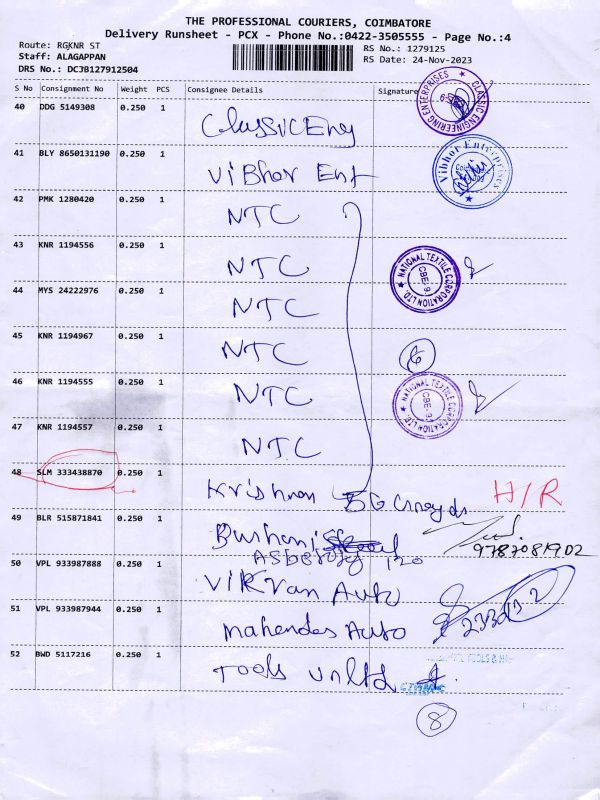 THE PROFESSIONAL COURIERS, COIMBATORE
Delivery Runsheet - PCX - Phone No.:0422-3505555 - Page No.:4
Route: RGKNR ST
RS No.: 1279125
Staff: ALAGAPPAN
RS Date: 24-Nov-2023
DRS No.: DCJB127912504
S No Consignment No Weight PCS Consignee Details Signature
40 DDG 5149308 0.250 1
Classic Eng
CLASSIC ENGINEERING ENTERPRISES
41 BLY 8650131190 0.250 1
Vibhor Ent
Vibhor Enterprises
42 PMK 1280420 0.250 1
NTC
43 KNR 1194556 0.250 1
NTC
NATIONAL TEXTILE CORPORATION LTD.
CBE-9
44 MYS 24222976 0.250 1
NTC
45 KNR 1194967 0.250 1
NTC
6
46 KNR 1194555 0.250 1
NTC
NATIONAL TEXTILE CORPORATION LTD.
CBE-9
47 KNR 1194557 0.250 1
NTC
48 SLM 333438870 0.250 1
Krishnan
H/R
49 BLR 515871841 0.250 1
9787081902
50 VPL 933987888 0.250 1
Auto
51 VPL 933987944 0.250 1
Auto
52 BWD 5117216 0.250 1
Tools unltd
8